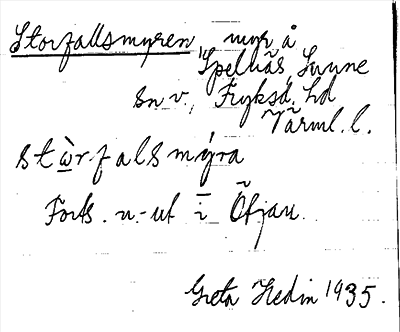 Storfallsmyren, myr å
Spelnäs, Sunne
sn v., Fryksd. hd
Värml. l.
stὼrfalsmýra
Forts. n.-ut i
Greta Hedin 1935.